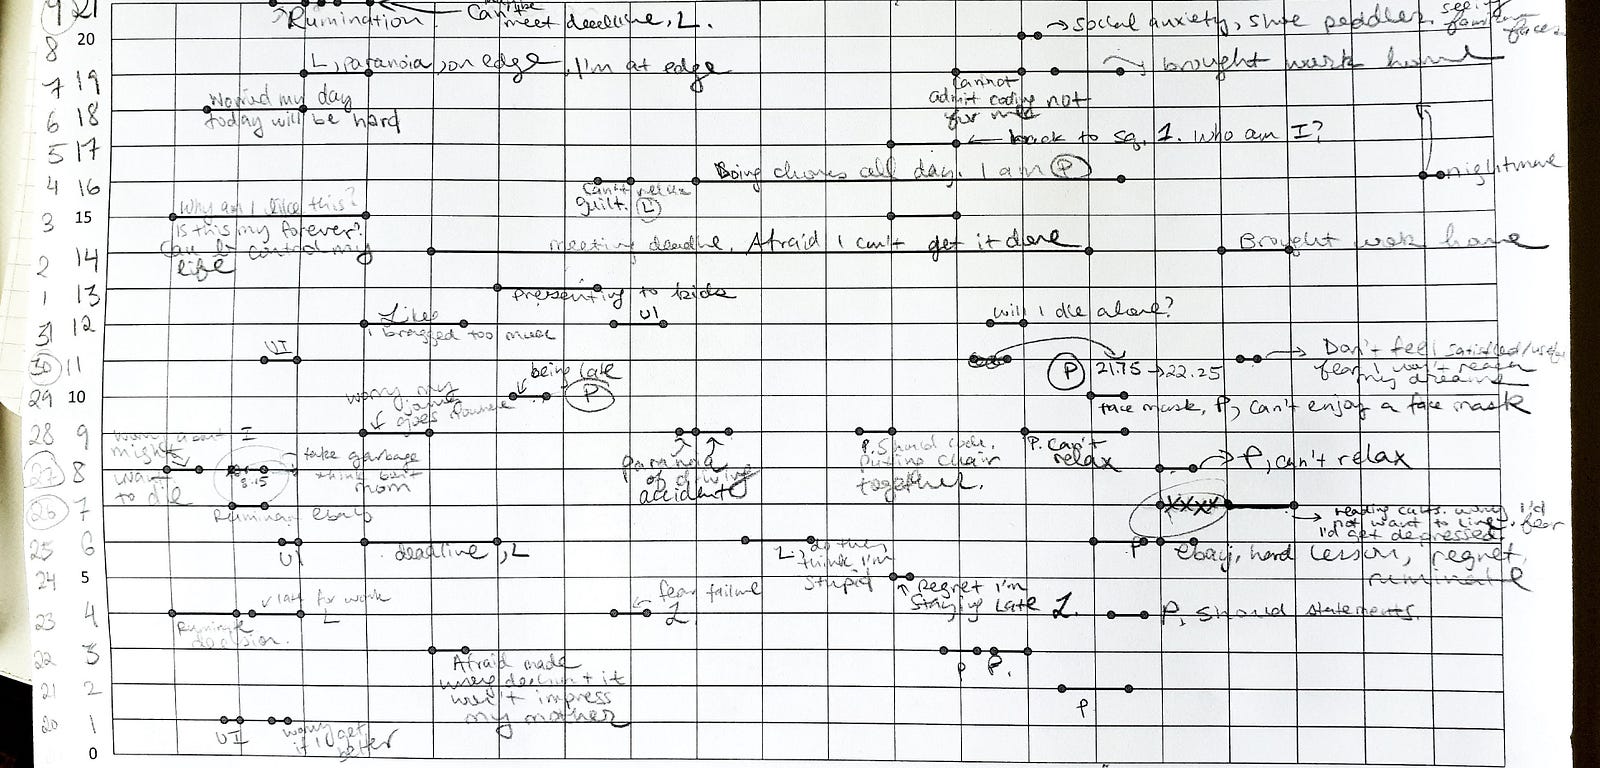 9 21
Rumination
Can't be
meet deadline, L.
8 20
social anxiety, shoe peddler, seeing
faces
7 19
L, paranoia, on edge, I'm at edge
brought work home
Cannot
admit coding not
for me
6 18
Worried my day
today will be hard
5 17
back to sq. 1. who am I?
4 16
Can't relax
guilt. L
Doing chores all day. I am P
nightmare
3 15
Why am I like this?
Is this my forever?
Can I control my
life
2 14
meeting deadline, Afraid I can't get it done
Brought work home
1 13
presenting to kids
31 12
Like
I bragged too much
UI
will I die alone?
30 11
UI
P 21.75 → 22.25
Don't feel satisfied/useful
fear I won't reach
my dreams
29 10
worry my
goes nowhere
being late
P
face mask, P, can't enjoy a face mask
28 9
worry about I
might
want
to die
paranoia
of driving
accidents
P. Should code,
putting chair
together.
P. can't
relax
27 8
8.15
take garbage
think bad
mom
P, can't relax
26 7
Ruminan ebay
XXXX
reading cards. worry I'd
not want to live. fear
I'd get depressed
25 6
UI
deadline, L
L, do they
think I'm
stupid
P
ebay, hard lesson, regret,
ruminate
24 5
Regret I'm
staying late L.
23 4
late for work
L
Ruminate
decision.
fear failure
L
P, should statements.
22 3
Afraid made
wrong decision + it
won't impress
my mother
P P.
21 2
P
20 1
UI
worry
if I get
better
0